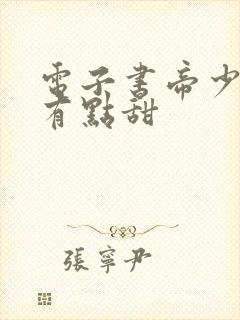 電子書帝少
有點甜
張寧尹